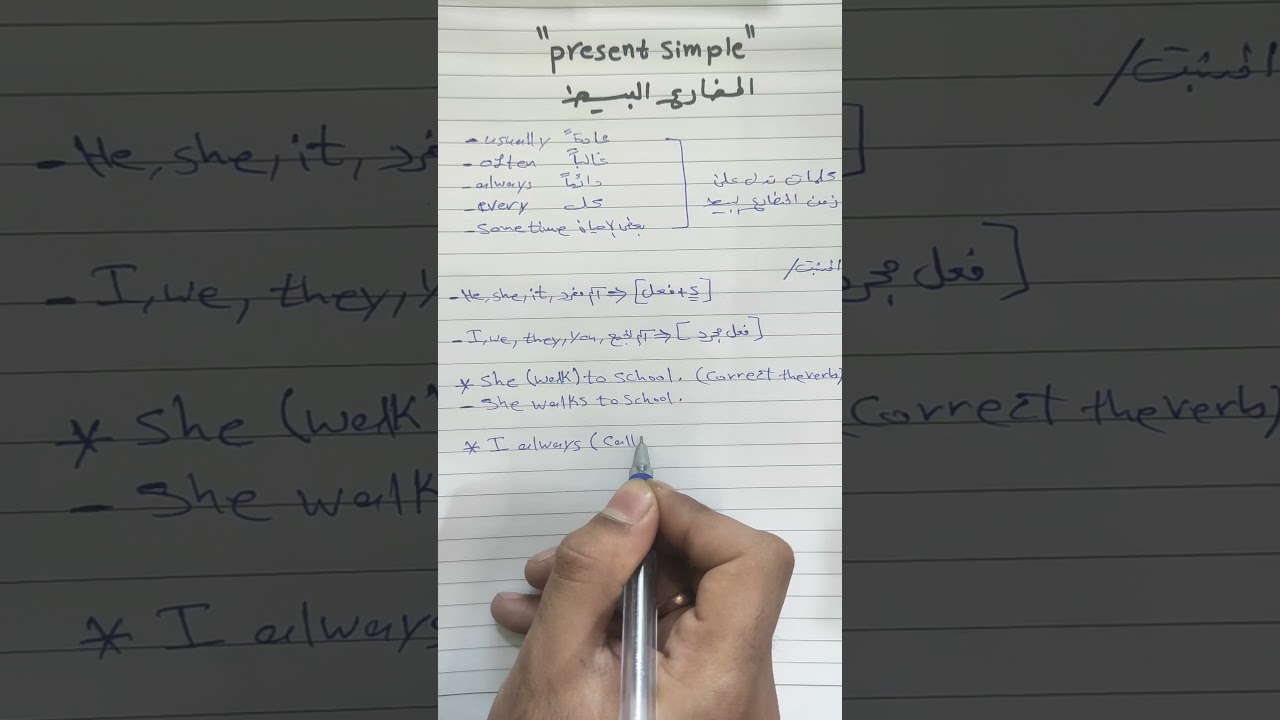 "present simple"
المضارع البسيط
- usually عادةً
- often غالباً
- always دائماً
- every كل
- Sometime بعض الاحيان
كلمات تدل على
زمن المضارع بسيط
المثبت/
- He, she, it, اسم مفرد ⇒ [فعل + s]
- I, we, they, you, اسم الجمع ⇒ [فعل مجرد]
* She (walk) to school. (Correct the verb)
- She walks to school.
* I always (Call